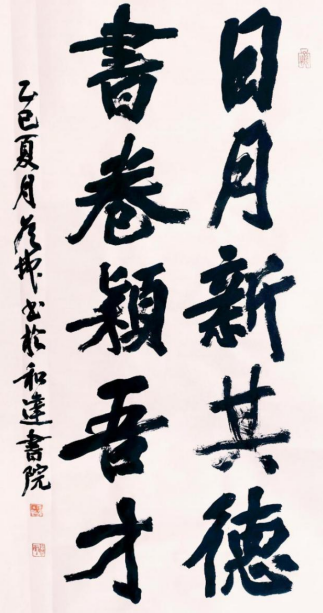 日月新其德
書卷穎吾才
乙巳夏月 書於和達書院